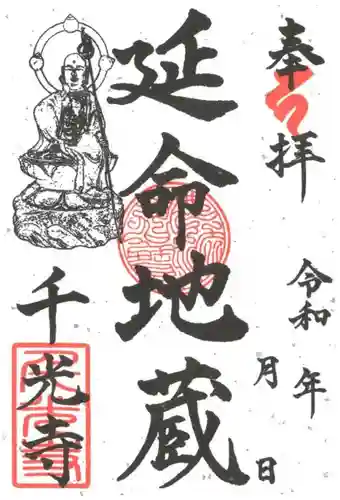 奉拝
令和 年
月 日
延命地蔵
千光寺